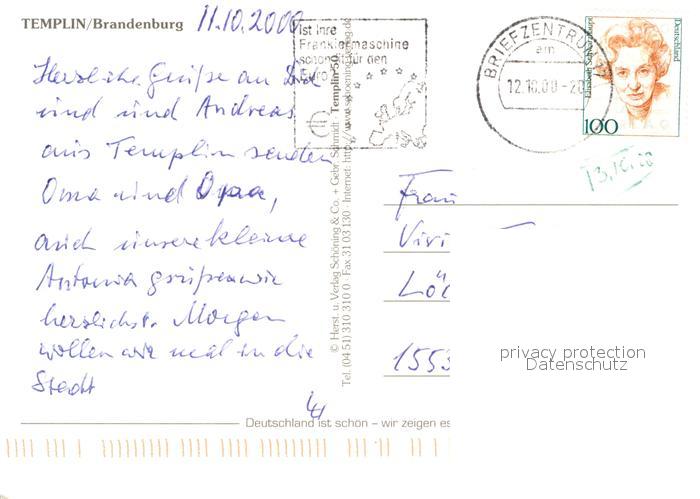 TEMPLIN/Brandenburg
11.10.2000
Herzliche Grüße an Dich
und und Andreas
aus Templin senden
Oma und Opa,
auch unsere kleine
Antonia grüßen wir
herzlichst. Morgen
wollen wir mal in die
Stadt
Ist Ihre
Frankiermaschine
schon fit für den
Euro
BRIEFZENTRUM
12.10.00-20
Deutschland
100
13.10.00
Frau
Vivi
Lö
1553
© Herst. u. Verlag Schöning & Co. + Gebr. Schmidt
Tel. (04 51) 310 310 0 · Fax 31 03 130 · Internet: http://www.schoening-verlag.de
Templin 50
Deutschland ist schön – wir zeigen es
privacy protection
Datenschutz